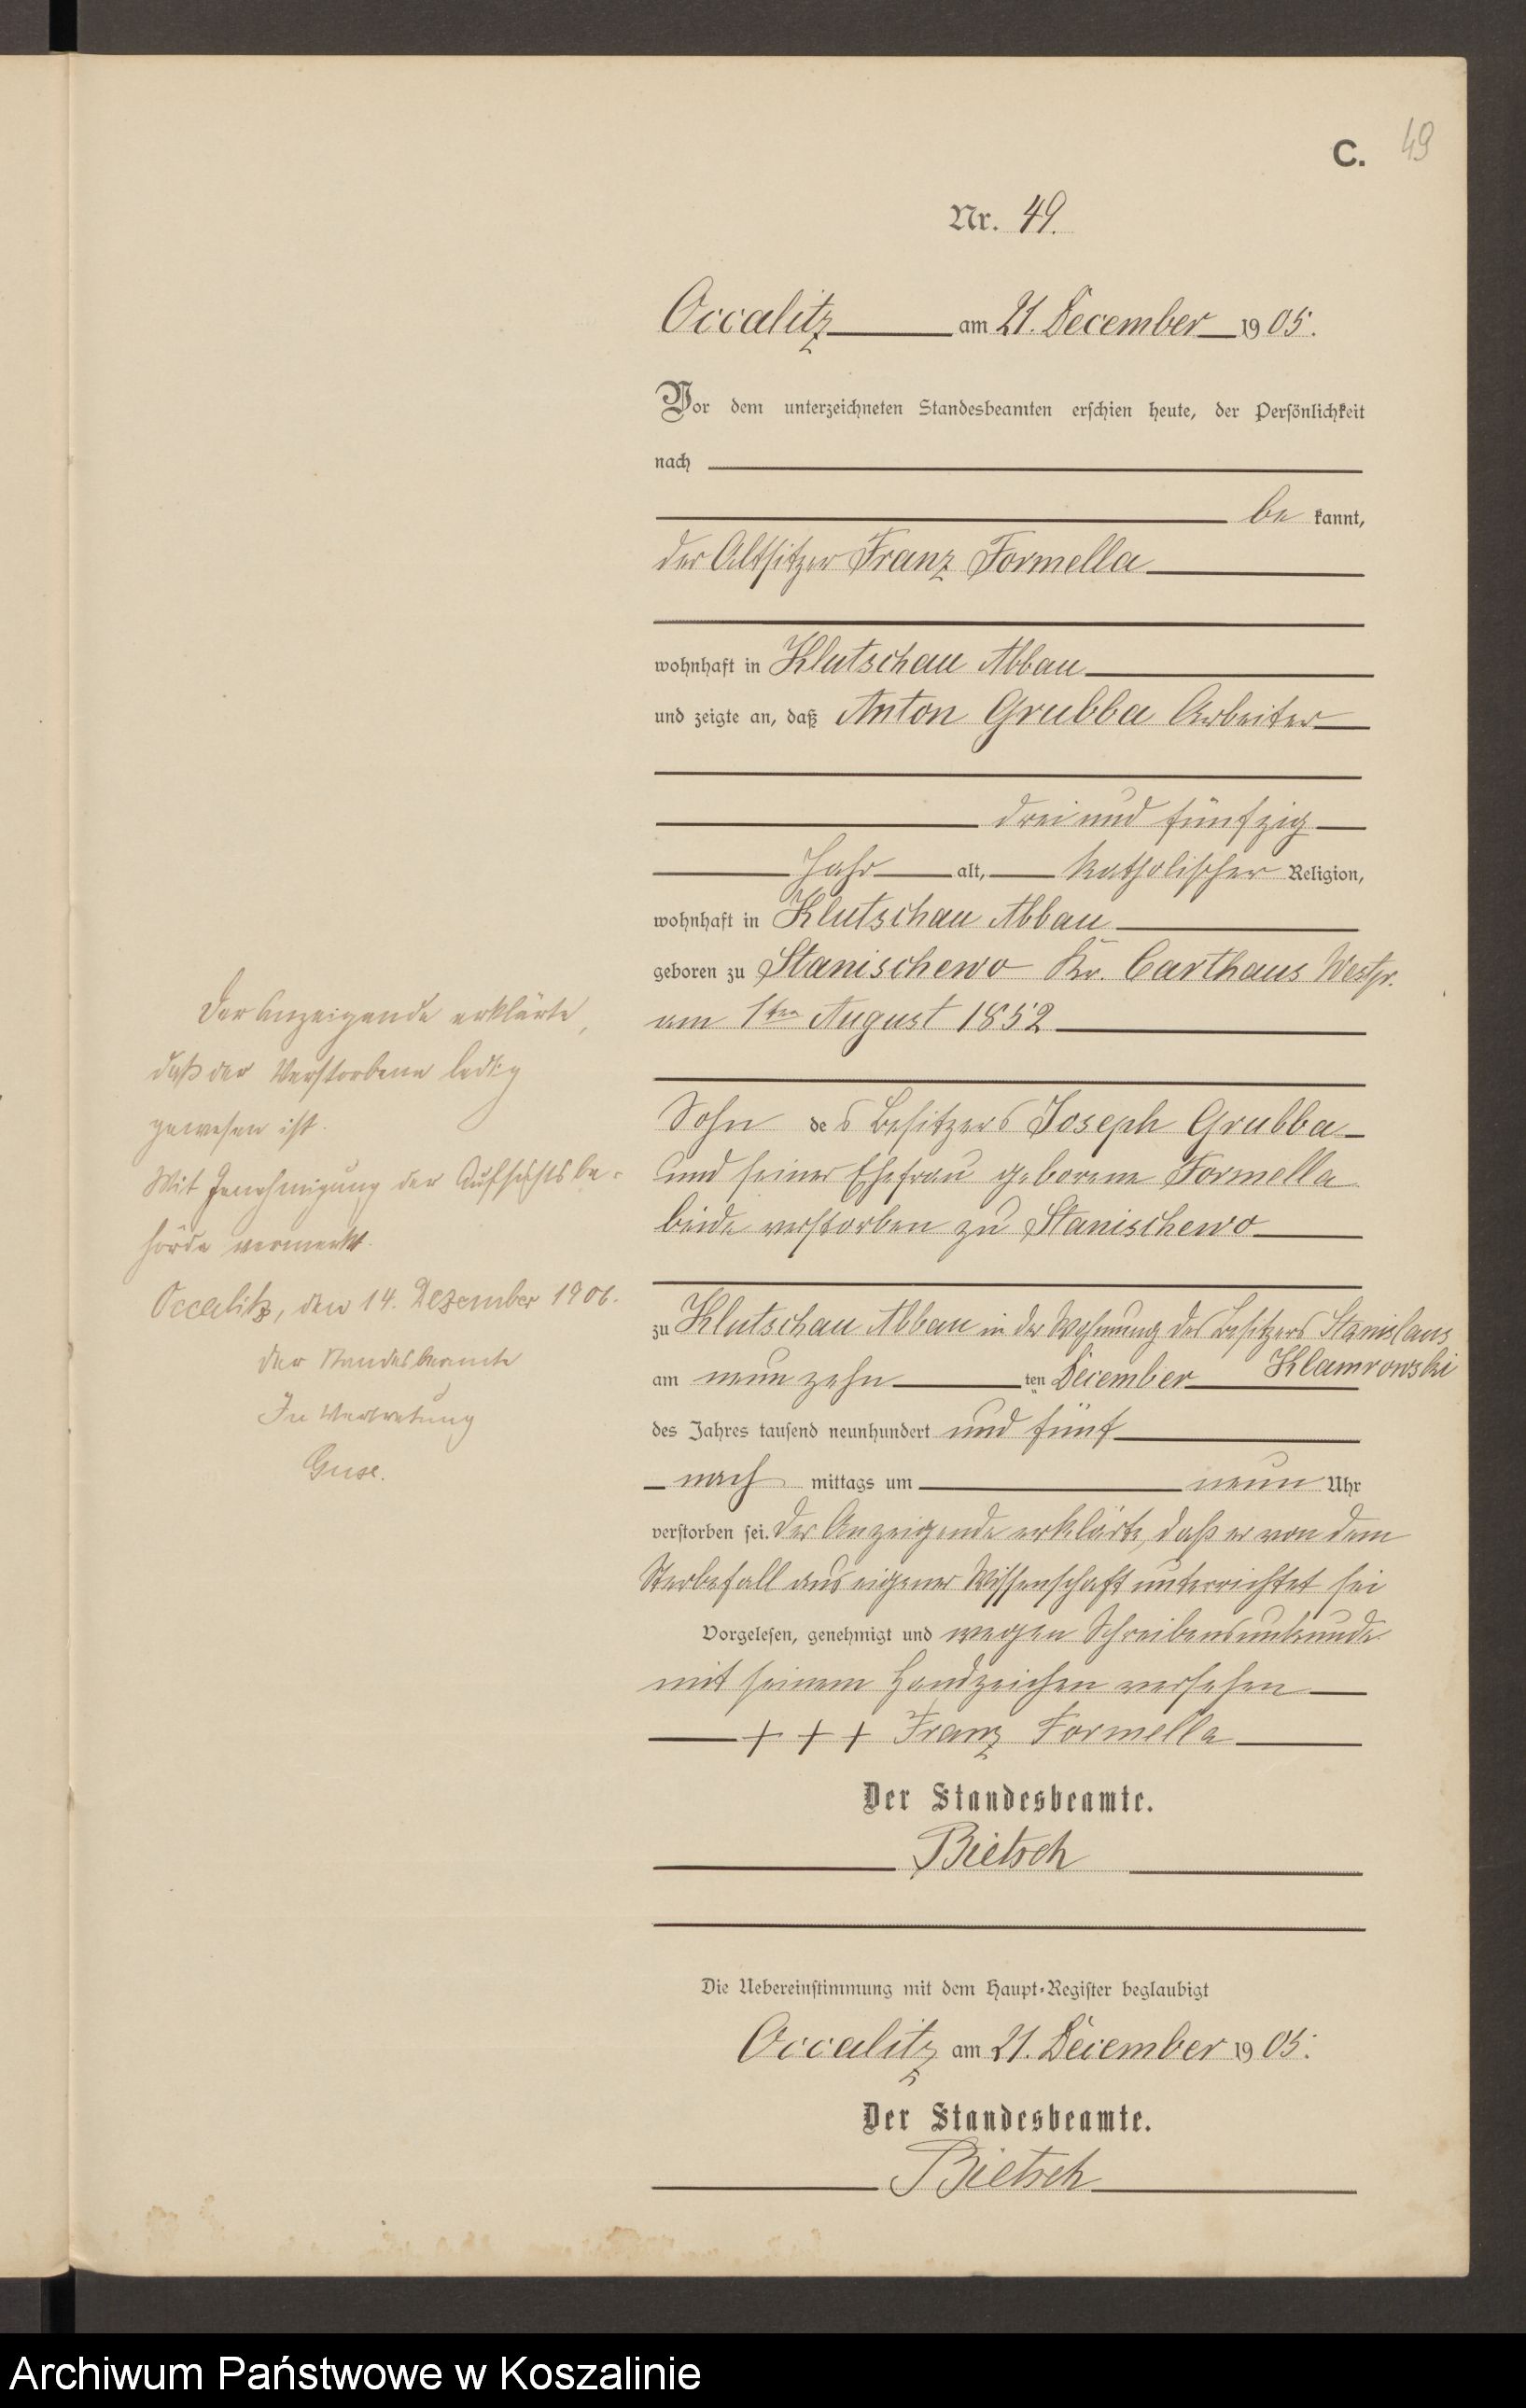 C. 49
Nr. 49.
Occalitz am 21. December 1905.
Vor dem unterzeichneten Standesbeamten erschien heute, der Persönlichkeit
nach
be kannt,
der Altsitzer Franz Formella
wohnhaft in Klutschau Abbau
und zeigte an, daß Anton Grubba Arbeiter
drei und fünfzig
Jahr alt, katholischer Religion,
wohnhaft in Klutschau Abbau
geboren zu Stanischewo Kr. Carthaus Westpr.
am 1ten August 1852
Sohn des Besitzers Joseph Grubba
und seiner Ehefrau geborene Formella
beide verstorben zu Stanischewo
zu Klutschau Abbau in der Wohnung des Besitzers Stanislaus
Klamrowski
am neun zehn ten December
des Jahres tausend neunhundert und fünf
nach mittags um neun Uhr
verstorben sei. Der Anzeigende erklärte, daß er von dem
Sterbefall aus eigener Wissenschaft unterrichtet sei
Vorgelesen, genehmigt und wegen Schreibensunkunde
mit seinem Handzeichen versehen
+ + + Franz Formella
Der Standesbeamte.
Bietsch
Die Uebereinstimmung mit dem Haupt-Register beglaubigt
Occalitz am 21. December 1905.
Der Standesbeamte.
Bietsch
Der Anzeigende erklärte,
daß der Verstorbene ledig
gewesen ist.
Mit Genehmigung der Aufsichtsbe-
hörde vermerkt.
Occalitz, den 14. Dezember 1906.
Der Standesbeamte
In Vertretung
Guse.
Archiwum Państwowe w Koszalinie